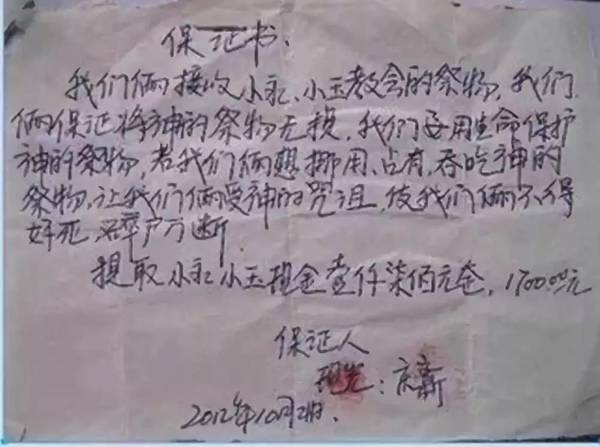 保证书、
我们俩接收小永、小玉教会的祭物，我们
俩保证将神的祭物无损，我们要用生命保护
神的祭物，若我们俩想挪用、占有、吞吃神的
祭物，让我们俩受神的咒诅，使我们俩不得
好死，碎尸万断
提取小永小玉现金壹仟柒佰元全，1700.00元
保证人
：庆新
2012年10月2